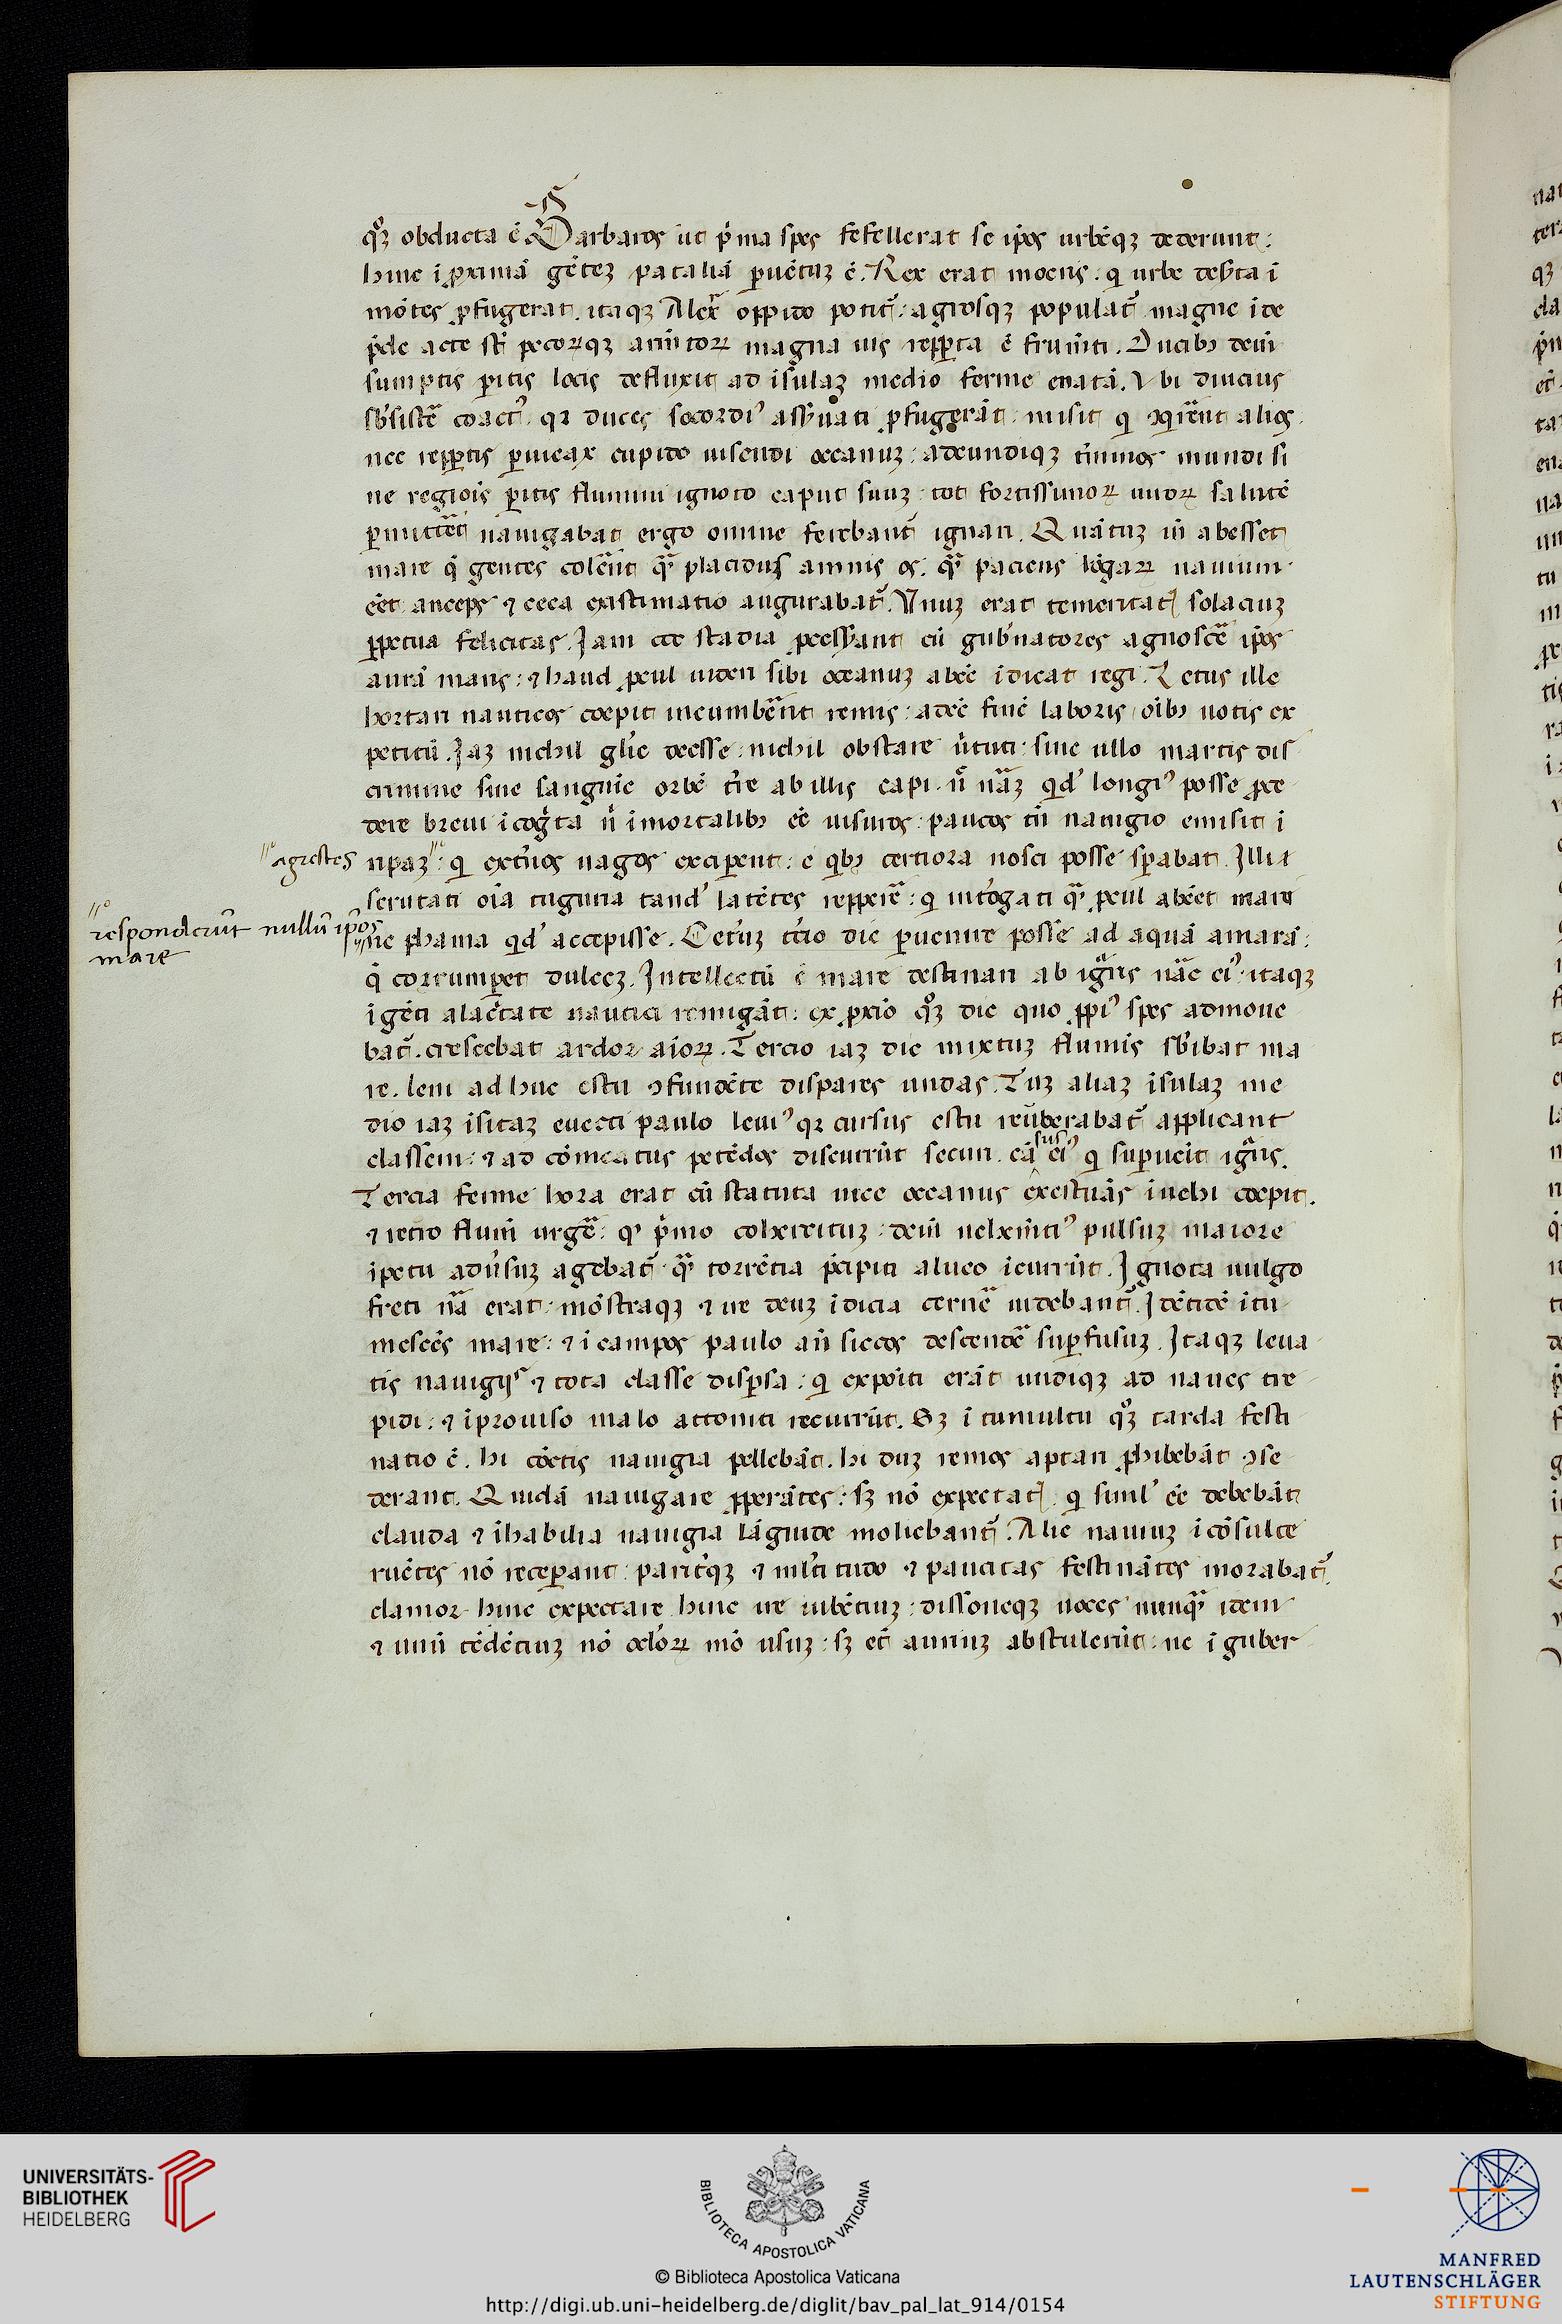 qȝ obducta ē Barbaros ut pͥma spes fefellerat se ip̄os urbēqȝ dederunt:
hinc ī proximā gētēȝ pataliā puētuȝ ē. Rex erat moeris: q urbe deẜta ī
mōtes profugerat. itaqȝ Alexͬ oppido potitᷣ: agrosqȝ populatᷣ magne ide
pͥde acte sūt pecorȝqȝ armētorꝝ magna uis repꝑta ē frumēti. Ducibꝫ dein
sumptis ꝑitis locis defluxit ad īsulaȝ medio ferme enatā. Vbi diucius
sb̓sistē coactꝰ qꝛ duces socordiꝰ asẜuati ꝓfugerāt: misit q ꝯqͥrēnt alios.
nec repꝑtis ꝑuicax cupido uisendi oceanuȝ: adeundiqȝ t̓minos mundi si
ne regiois ꝑitis flumini ignoto caput suuȝ: tot fortissimorꝝ uirorꝝ salutē
ꝑmittēt nauigabat ergo omīne ferebantᷣ ignari. Quātuȝ īn abesset
mare q̄ gentes colēnt qᷓ placidus amnis os. qᷓ paciens lōgarꝝ nauium
eēt anceps ⁊ ceca existimatio augurabatᷣ. Vnuȝ erat temeritatꝭ solaciuȝ
ꝑpetua felicitas. Jam cce stadia ꝓcesẜant cū gub̓natores agnoscē ip̄os
aurā maris: ⁊ haud ꝓcul uideri sibi oceanuȝ abeē īdicāt regi. Letus ille
hortari nauticos coepit incumbēnt remis: adeē finē laboris oībꝫ uotis ex
petitū. Jaȝ nichil gl̄ie deesse: nichil obstare ūtuti: sine ullo martis dis
crimine sine sanguīe orbē tr̄e ab illis capi. n̄ nāȝ qd̓ longiꝰ posse ꝓce
dere breui īcogͥta n̄ īmortalibꝫ eē uisuros: paucos tn̄ nauigio emisit ī
agrestes
ripaȝ: q ext̓nos uagos exciꝑent: e qͥbꝫ certiora nosci posse sꝑabat. Illi
scrutati oīa tuguria tand̓ latētes repperē: q int̓rogati qᷓ ꝓcul abeēt mare
responderūt nullū ip̄os
mare
ne phama qd̓ accepisse. Cet̓uȝ tc̓io die ꝑuenire posse ad aquā amarā:
q̄ corrumꝑet dulceȝ. Intellectū ē mare destinari ab igᷓris nāe eiꝰ. itaqȝ
īgēti alacͥtate nautici remigāt: ex ꝓxio qȝ die quo ꝓpiꝰ spes admoue
batᷣ. crescebat ardor aīorꝝ. Tercio iaȝ die mixtuȝ flumīs sb̓ibat ma
re. leni adhuc estu ꝯfundēte dispares undas. Tuȝ aliaȝ īsulaȝ me
dio iaȝ īsitaȝ euecti paulo leniꝰ qꝛ cursus estu reūberabatᷣ applicant
classem: ⁊ ad cōmeatus petēdos discurrūt securi. cā sus eiꝰ q suꝑueit igᷓris.
Tercia ferme hora erat cū statuta uice oceanus exestuās īuehi coepit.
⁊ retro flumē urgē: qꝰ pͥmo cohercituȝ: dein uehemētiꝰ pulsuȝ maiore
īpetu adūsuȝ agebatᷣ qᷓ torrētia p̄cipiti alueo īcurrūt. Ignota uulgo
freti nā erat: mōstraqȝ ⁊ ire deuȝ īdicia cernē uidebantᷣ. Idētidē itu
mescēs mare: ⁊ ī campos paulo añ siccos descendē suꝑfusuȝ. Itaqȝ leua
tis nauigijs ⁊ tota classe disꝑsa: q expoiti erāt undiqȝ ad naues tre
pidi: ⁊ īprouiso malo attoniti recurrūt. Sȝ ī tumultu qȝ tarda festi
natio ē. hi cōtis nauigia pellebāt. hi duȝ remos aptari ꝓhibebāt ꝯse
derant. Quidā nauigare ꝓperātes: sȝ nō expectatꝭ q siml̓ eē debebāt
clauda ⁊ īhabilia nauigia lāguide moliebantᷣ. Alie nauiuȝ icōsulte
ruētes nō receꝑant: parit̓qȝ ⁊ ml̓titudo ⁊ paucitas festinātes morabatᷣ.
clamor hinc expectare hinc ire iubētiuȝ: dissoneqȝ uoces nunqᷓ idem
⁊ unū tēdētiuȝ nō oclorꝝ mō usuȝ: sȝ eciā auriuȝ abstulerūt: ne ī guber
UNIVERSITÄTS-
BIBLIOTHEK
HEIDELBERG
BIBLIOTECA APOSTOLICA VATICANA
© Biblioteca Apostolica Vaticana
http://digi.ub.uni-heidelberg.de/diglit/bav_pal_lat_914/0154
MANFRED
LAUTENSCHLÄGER
STIFTUNG